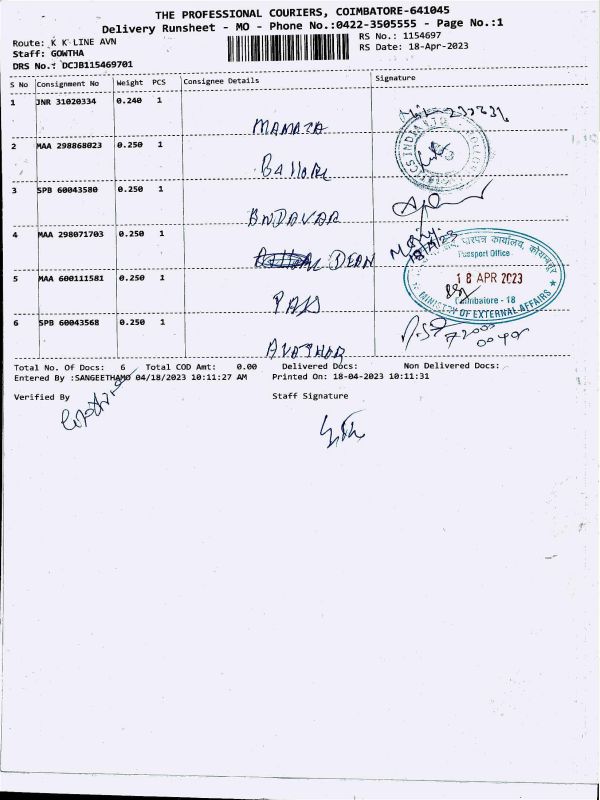 THE PROFESSIONAL COURIERS, COIMBATORE-641045
Delivery Runsheet - MO - Phone No.:0422-3505555 - Page No.:1
Route: K K LINE AVN
RS No.: 1154697
Staff: GOWTHA
RS Date: 18-Apr-2023
DRS No.: DCJB115469701
S No Consignment No Weight PCS Consignee Details Signature
1 JNR 31020334 0.240 1
MAMATA
2 MAA 298868023 0.250 1
Ballore
3 SPB 60043580 0.250 1
BNDAVAR
4 MAA 298071703 0.250 1
DEAN
18/4/23
पारपत्र कार्यालय, कोयम्बटूर
Passport Office
18 APR 2023
Coimbatore - 18
MINISTRY OF EXTERNAL AFFAIRS
5 MAA 600111581 0.250 1
PAS
6 SPB 60043568 0.250 1
AVATHAR
Total No. Of Docs: 6 Total COD Amt: 0.00 Delivered Docs: Non Delivered Docs:
Entered By :SANGEETHAMO 04/18/2023 10:11:27 AM Printed On: 18-04-2023 10:11:31
Verified By Staff Signature